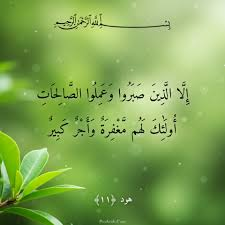 بسم الله الرحمن الرحيم
إِلَّا الَّذِينَ صَبَرُوا وَعَمِلُوا الصَّالِحَاتِ
أُولَٰئِكَ لَهُم مَّغْفِرَةٌ وَأَجْرٌ كَبِيرٌ
هود ﴿١١﴾